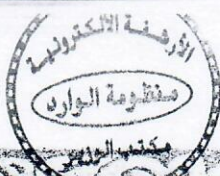 الأرشفة الالكترونية
منظومة الوارد
مكتب الوزير